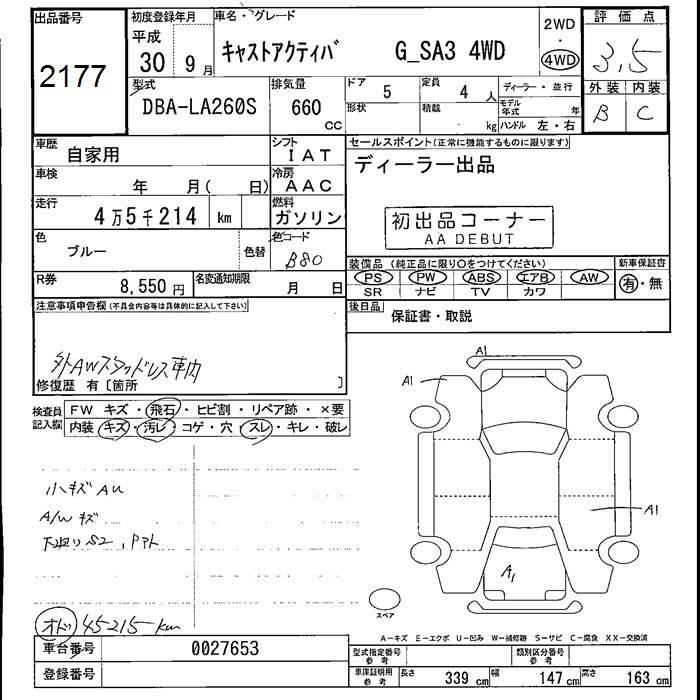 出品番号
2177
初度登録年月
平成
30 9 月
車名・グレード
キャストアクティバ G_SA3 4WD
2WD
・
4WD
評価点
3.5
外装 内装
B C
型式
DBA-LA260S
排気量
660
cc
ドア 5
形状
定員 4 人
積載 kg
ディーラー・並行
モデル年式 年
ハンドル 左・右
車歴 自家用
シフト IAT
車検 年 月( 日)
冷房 AAC
走行 4万5千214 km
燃料 ガソリン
色 ブルー
色替
色コード B80
R券 8,550 円
名変通知期限 月 日
セールスポイント(正常に機能するものに限ります)
ディーラー出品
初出品コーナー
AA DEBUT
装備品 (純正品に限り○をつけてください)
PS PW ABS エアB AW
SR ナビ TV カワ
新車保証書
有・無
後日品 保証書・取説
注意事項申告欄(不具合内容等は具体的に記入して下さい)
外AWスタッドレス車内
修復歴 有〔箇所 〕
検査員記入欄
FW キズ・飛石・ヒビ割・リペア跡・×要
内装 キズ・汚レ・コゲ・穴・スレ・キレ・破レ
小キズ AU
A/W キズ
下廻り S2、Pアト
オド 45215km
A1
A1
A1
A1
スペア
A−キズ E−エクボ U−凹み W−補修跡 S−サビ C−腐食 XX−交換済
車台番号 0027653
登録番号
型式指定番号 参考
類別区分番号 参考
車庫証明用 参考
長さ 339 cm 幅 147 cm 高さ 163 cm